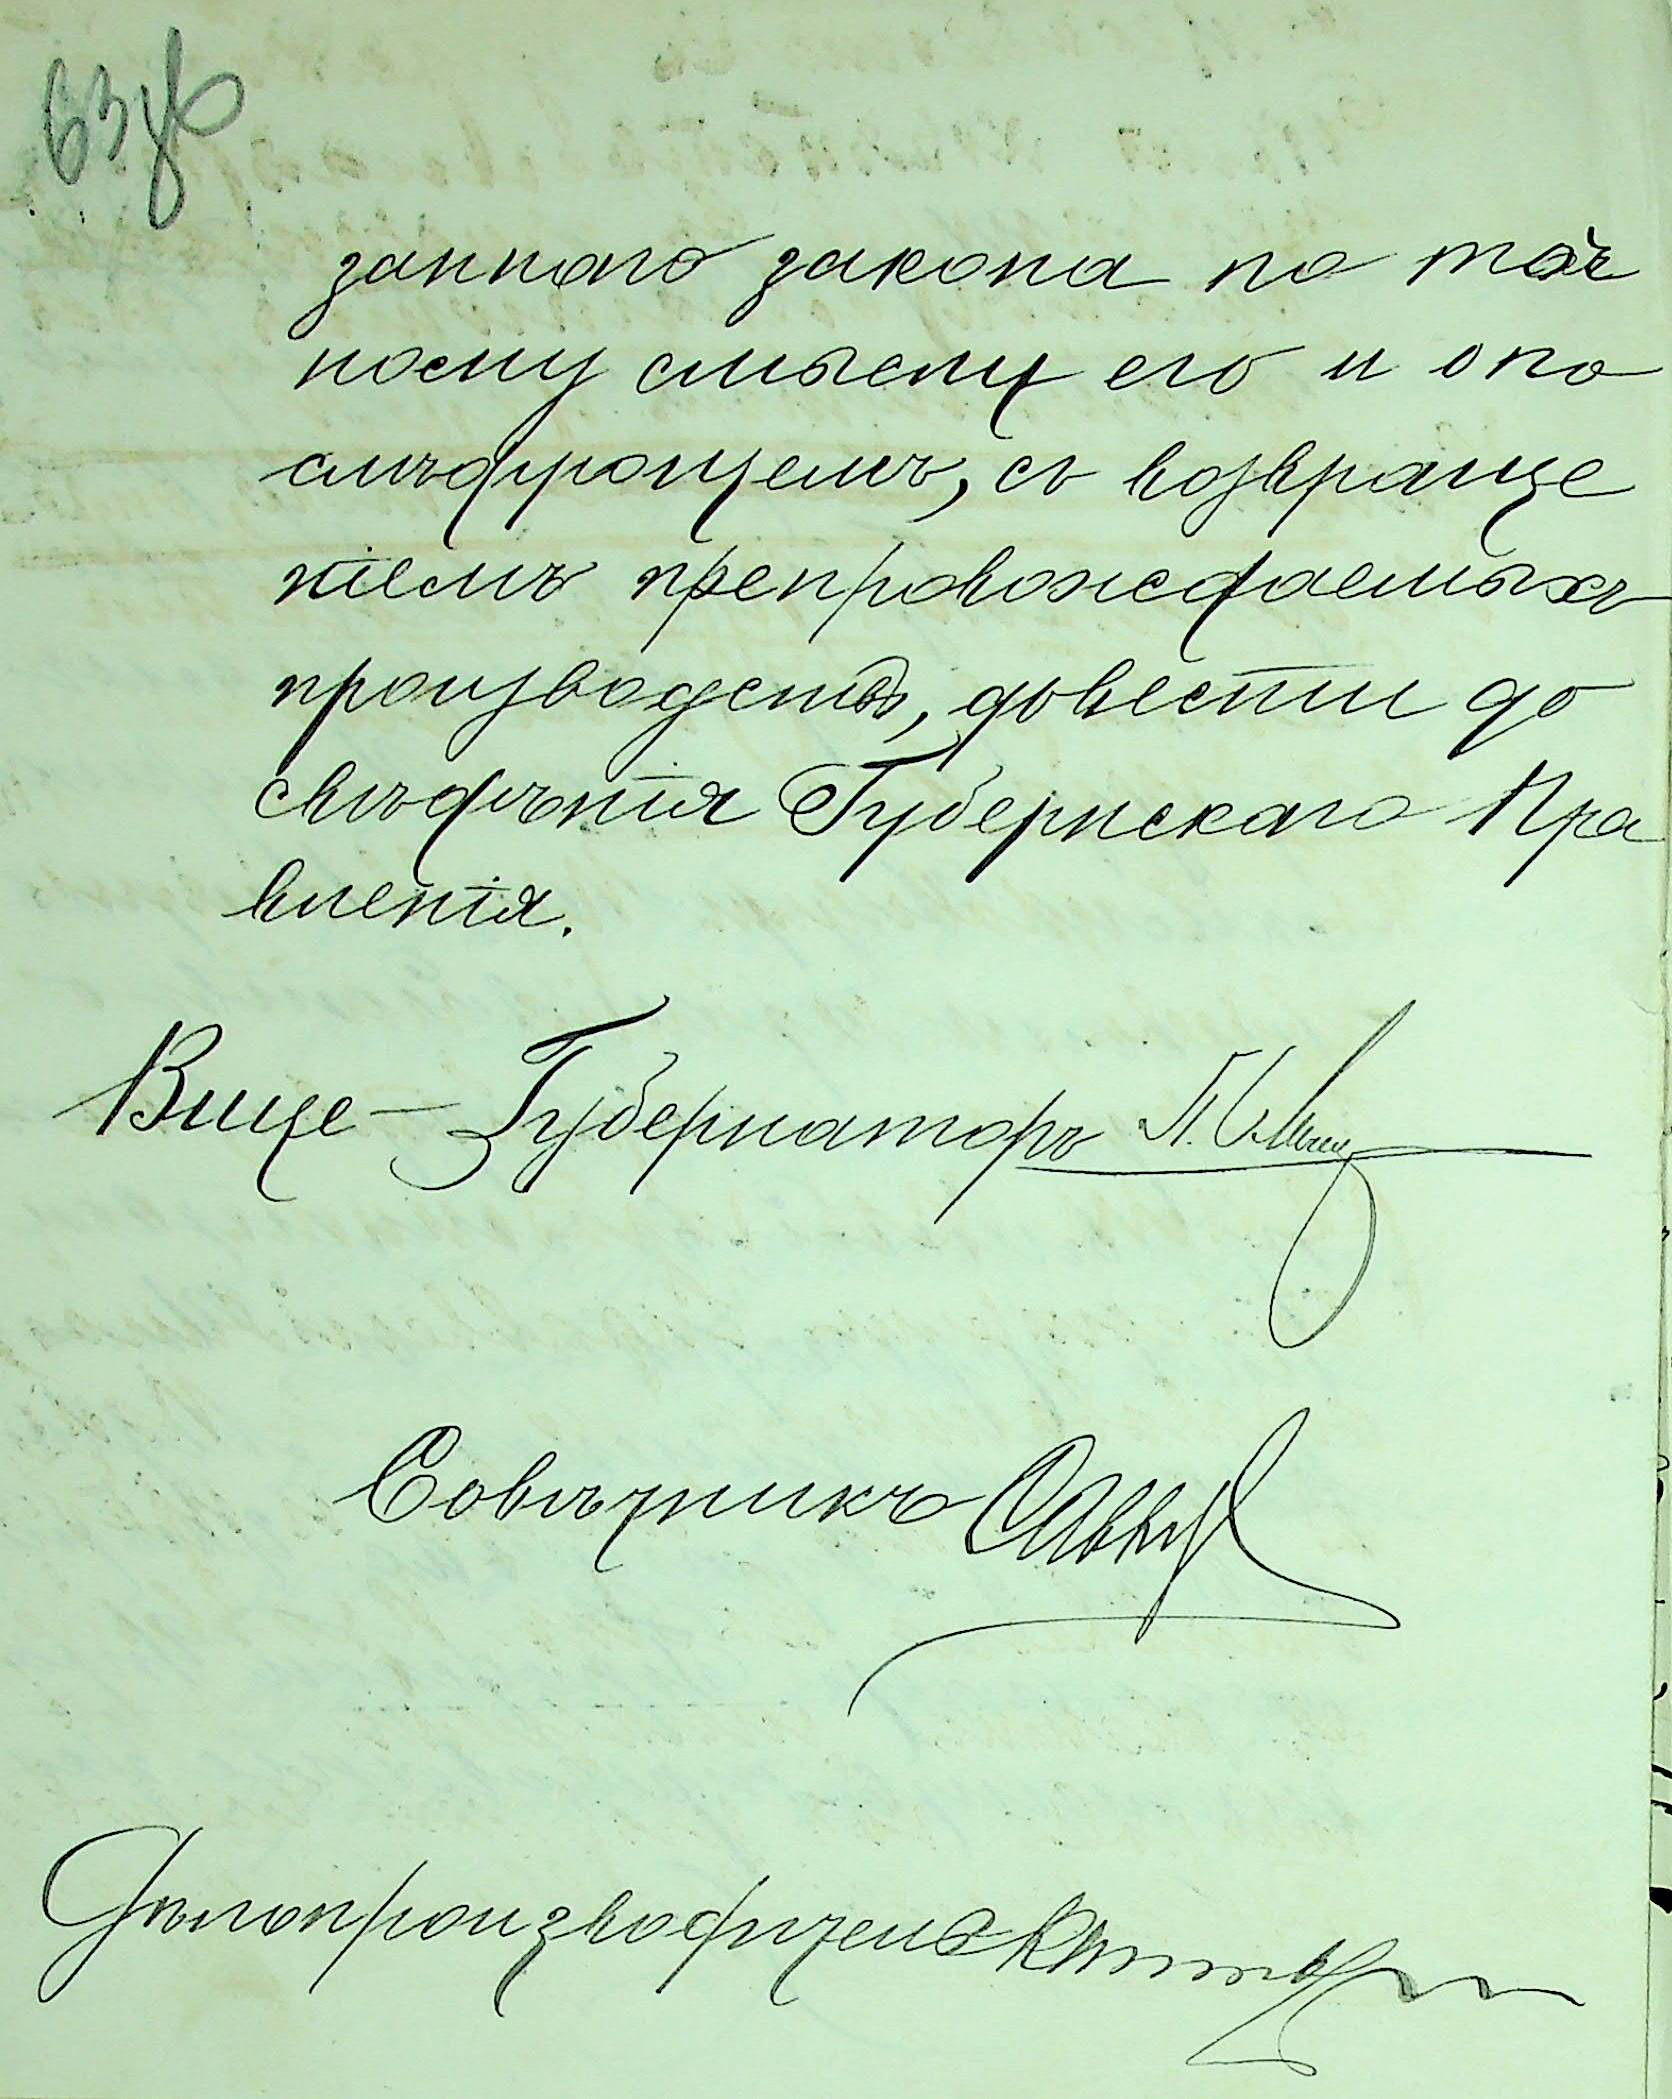 63об
заннаго закона по точ
ному смыслу его и о по
слѣдующемъ, съ возвраще
ніемъ препровождаемыхъ
производствъ, довести до
свѣдѣнія Губернскаго Пра
вленія.
Вице-Губернаторъ
Совѣтникъ
Дѣлопроизводитель